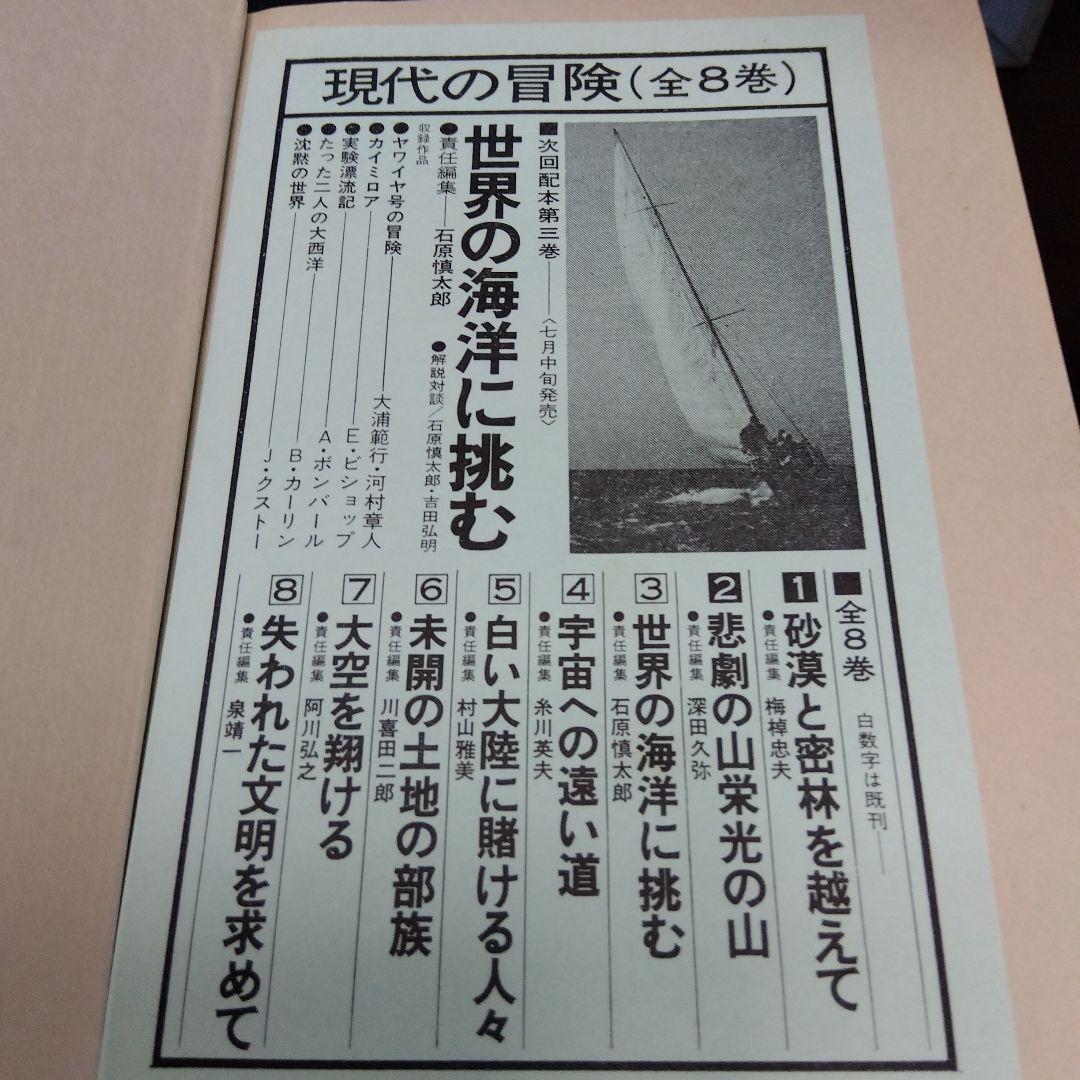 現代の冒険(全8巻)
■次回配本第三巻――〈七月中旬発売〉
世界の海洋に挑む
●責任編集――石原慎太郎 ●解説対談/石原慎太郎・吉田弘明
収録作品
●ヤワイヤ号の冒険――大浦範行・河村章人
●カイミロア――E・ビショップ
●実験漂流記――A・ボンバール
●たった二人の大西洋――B・カーリン
●沈黙の世界――J・クストー
■全8巻 白数字は既刊――
1 砂漠と密林を越えて
●責任編集 梅棹忠夫
2 悲劇の山栄光の山
●責任編集 深田久弥
3 世界の海洋に挑む
●責任編集 石原慎太郎
4 宇宙への遠い道
●責任編集 糸川英夫
5 白い大陸に賭ける人々
●責任編集 村山雅美
6 未開の土地の部族
●責任編集 川喜田二郎
7 大空を翔ける
●責任編集 阿川弘之
8 失われた文明を求めて
●責任編集 泉靖一